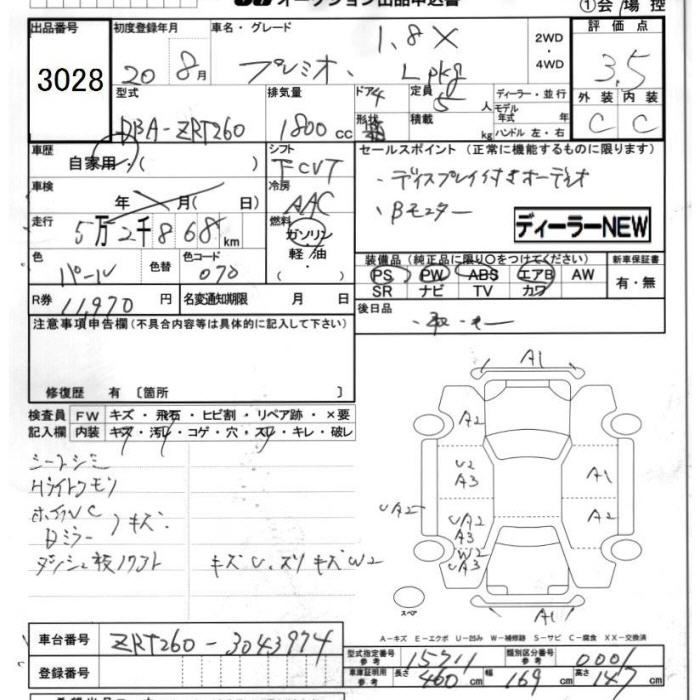 オークション出品申込書
①会場控
出品番号
3028
初度登録年月
20年8月
車名・グレード
プレミオ、 1.8X Lpkg
2WD
・4WD
評価点
3.5
外装 内装
C C
型式
DBA-ZRT260
排気量
1800cc
ドア 4
形状
定員 5人
積載 kg
ディーラー・並行
モデル年式 年
ハンドル 左・右
車歴
自家用・( )
シフト
FCVT
車検
年 月( 日)
冷房
AAC
走行
5万2千868km
燃料
ガソリン
軽油
・( )
色
パール
色替
色コード
070
R券 11,970円
名変通知期限 月 日
セールスポイント (正常に機能するものに限ります)
・ディスプレイ付きオーディオ
・Bモニター
ディーラーNEW
装備品(純正品に限り○をつけてください)
PS PW ABS エアB AW
SR ナビ TV カワ
新車保証書
有・無
後日品
・取・セー
注意事項申告欄(不具合内容等は具体的に記入して下さい)
修復歴 有 〔箇所 〕
検査員記入欄
FW キズ・飛石・ヒビ割・リペア跡・×要
内装 キズ・汚レ・コゲ・穴・スレ・キレ・破レ
シートシミ
Hライトクモリ
ホイルC
Dミラー
キズ
キズU、ズリキズW2
A1
A2
U2
A3
A1
UA2
UA2
A3
W2
UA3
A2
A1
スペア
A-キズ E-エクボ U-凹み W-補修跡 S-サビ C-腐食 XX-交換済
車台番号 ZRT260-3043974
登録番号
型式指定番号 参考 15711
類別区分番号 参考 0001
車庫証明用 参考 長さ 460cm 幅 169cm 高さ 147cm